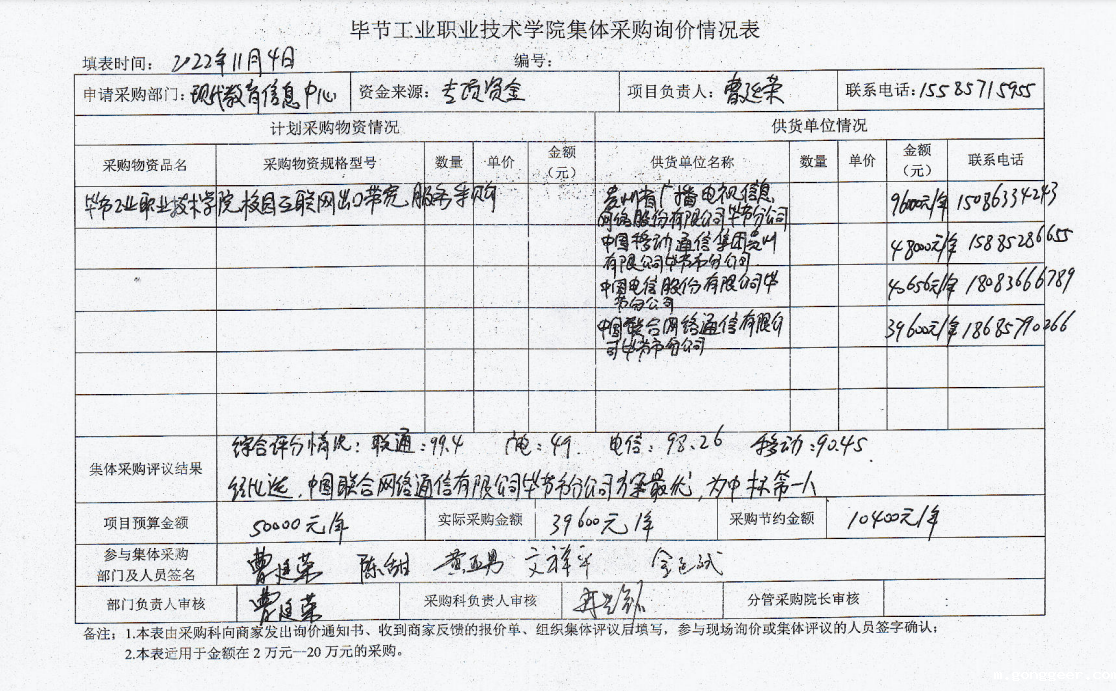 毕节工业职业技术学院集体采购询价情况表
填表时间： 2022年11月4日 编号：
申请采购部门：现代教育信息中心 资金来源：专项资金 项目负责人：曹廷荣 联系电话：15585715955
计划采购物资情况 供货单位情况
采购物资品名 采购物资规格型号 数量 单价 金额（元） 供货单位名称 数量 单价 金额（元） 联系电话
毕节工业职业技术学院校园互联网出口带宽服务采购
贵州省广播电视信息
网络股份有限公司毕节分公司 96000元/年 15086334243
中国移动通信集团贵州
有限公司毕节市分公司 48000元/年 15885286655
中国电信股份有限公司毕
节分公司 43656元/年 18083666789
中国联合网络通信有限公
司毕节市分公司 39600元/年 18685790266
集体采购评议结果 综合评分情况：联通：99.4 广电：49. 电信：93.26 移动：90.45.
经比选，中国联合网络通信有限公司毕节市分公司方案最优，为中标第一人
项目预算金额 50000元/年 实际采购金额 39600元/年 采购节约金额 10400元/年
参与集体采购
部门及人员签名 曹廷荣 陈甜 黄亚男 文祥平
部门负责人审核 曹廷荣 采购科负责人审核 分管采购院长审核
备注：1.本表由采购科向商家发出询价通知书、收到商家反馈的报价单、组织集体评议后填写，参与现场询价或集体评议的人员签字确认；
2.本表适用于金额在2万元--20万元的采购。